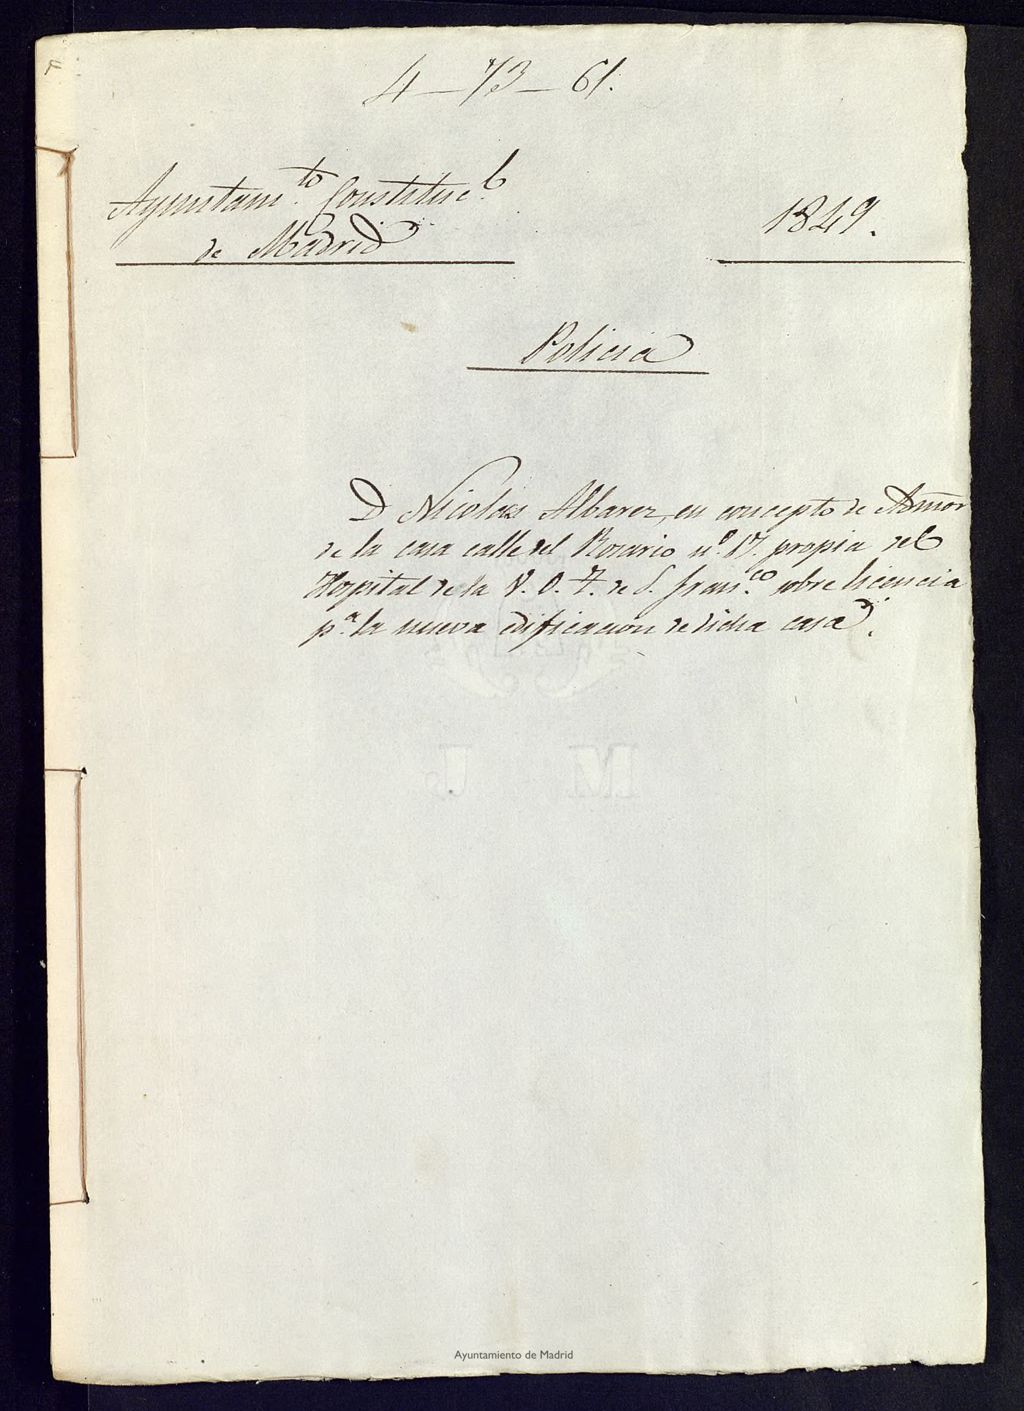 4-73-61.
Ayuntam.to Constituc.l
de Madrid
1849.
Policia
D Nicolas Albarez, en concepto de Admor
de la casa calle del Rosario n.o 17. propia del
Hospital de la V. O. T. de S. Fran.co sobre licencia
p.a la nueva edificacion de dicha casa.
M L
Ayuntamiento de Madrid